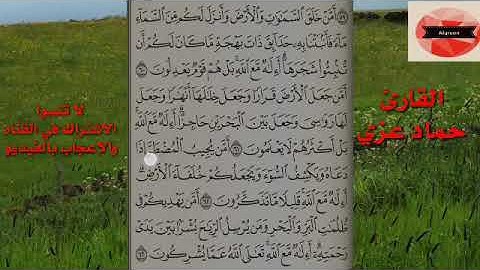 Alqraon
القارئ
حماد عزي
أَمَّنْ خَلَقَ ٱلسَّمَٰوَٰتِ وَٱلْأَرْضَ وَأَنزَلَ لَكُم مِّنَ ٱلسَّمَآءِ
مَآءً فَأَنۢبَتْنَا بِهِۦ حَدَآئِقَ ذَاتَ بَهْجَةٍ مَّا كَانَ لَكُمْ أَن
تُنۢبِتُوا۟ شَجَرَهَآ أَءِلَٰهٌ مَّعَ ٱللَّهِ بَلْ هُمْ قَوْمٌ يَعْدِلُونَ ٦٠
أَمَّن جَعَلَ ٱلْأَرْضَ قَرَارًا وَجَعَلَ خِلَٰلَهَآ أَنْهَٰرًا وَجَعَلَ
لَهَا رَوَٰسِىَ وَجَعَلَ بَيْنَ ٱلْبَحْرَيْنِ حَاجِزًا أَءِلَٰهٌ مَّعَ ٱللَّهِ
بَلْ أَكْثَرُهُمْ لَا يَعْلَمُونَ ٦١ أَمَّن يُجِيبُ ٱلْمُضْطَرَّ إِذَا
دَعَاهُ وَيَكْشِفُ ٱلسُّوٓءَ وَيَجْعَلُكُمْ خُلَفَآءَ ٱلْأَرْضِ
أَءِلَٰهٌ مَّعَ ٱللَّهِ قَلِيلًا مَّا تَذَكَّرُونَ ٦٢ أَمَّن يَهْدِيكُمْ فِى
ظُلُمَٰتِ ٱلْبَرِّ وَٱلْبَحْرِ وَمَن يُرْسِلُ ٱلرِّيَٰحَ بُشْرًۢا بَيْنَ يَدَىْ
رَحْمَتِهِۦٓ أَءِلَٰهٌ مَّعَ ٱللَّهِ تَعَٰلَى ٱللَّهُ عَمَّا يُشْرِكُونَ ٦٣
لا تنسوا
الاشتراك في القناه
والاعجاب بالفيديو